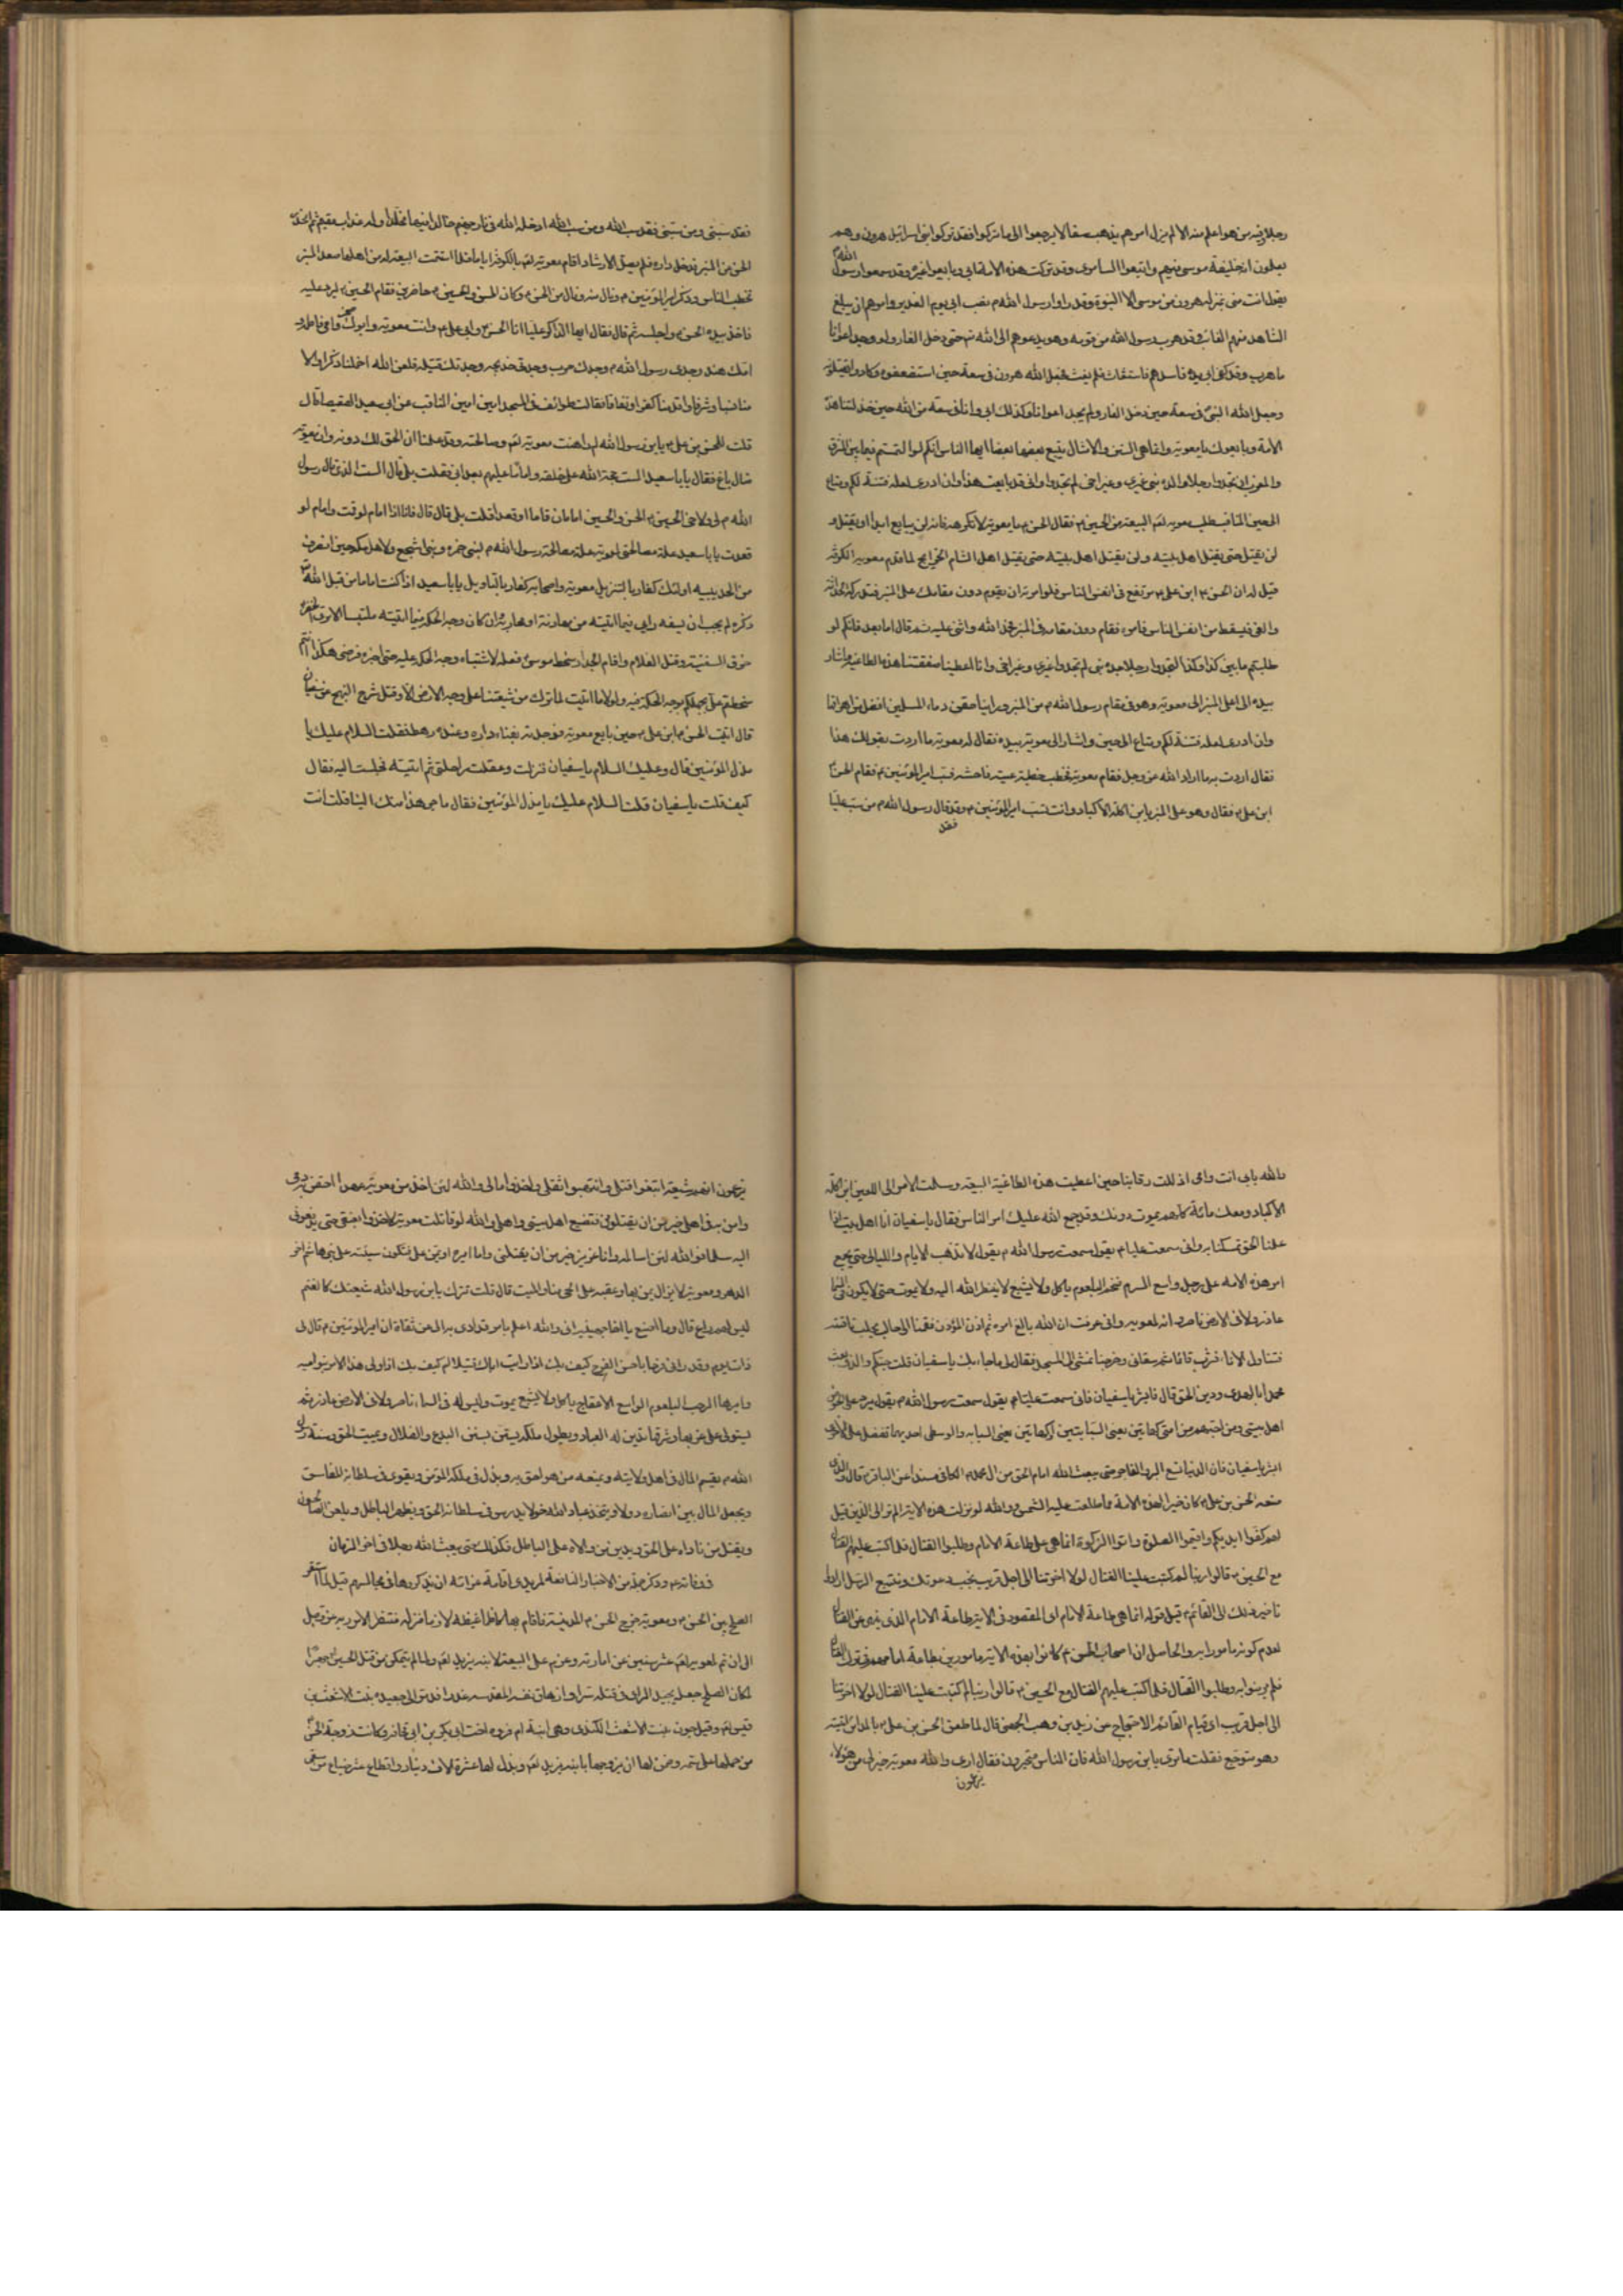 رجلا وفيه من هو اعلم منه الا لم يزل امرهم يذهب سفالا يرجعوا الى ما تركوا فقد تركوا بني اسرائيل هرون وهم
يعلمون انه خليفة موسى فيهم واتبعوا السامرى وقد تركت هذه الامة ابي وبايعوا غيره وقد سمعوا رسول الله
يقول انت منى بمنزلة هرون من موسى الا النبوة وقد راوا رسول الله نصب ابي يوم الغدير وامرهم ان يبلغ
الشاهد منهم الغائب وقد هرب رسول الله من قومه وهو يدعوهم الى الله حتى دخل الغار ولو وجد اعوانا
ما هرب وقد كف ابي يده ناشدهم فاستغاث فلم يغث فجعل الله هرون في سعة حين استضعفوه وكادوا يقتلونه
وجعل الله النبي في سعة حين دخل الغار ولم يجد اعوانا وكذلك ابي وانا في سعة من الله حين خذلتنا هذه
الامة وبايعوك يا معوية وانما هي السنن والامثال يتبع بعضها بعضا ايها الناس انكم لو التمستم فيما بين المشرق
والمغرب ان تجدوا رجلا ولده نبي غيري وغير اخي لم تجدوا واني قد بايعت هذا وان ادري لعله فتنة لكم ومتاع
الى حين المناقب طلب معوية البيعة من الحسين فقال الحسن يا معوية لا تكرهه فانه لن يبايع ابدا او يقتل و
لن يقتل حتى يقتل اهل بيته ولن يقتل اهل بيته حتى يقتل اهل الشام لما قدم معوية الكوفة
قيل له ان الحسن ابن علي مرتفع في انفس الناس فلو امرته ان يقوم دون مقامك على المنبر
والعي فيسقط من انفس الناس فامره فقام دون مقامه في المنبر فحمد الله واثنى عليه ثم قال اما بعد فانكم لو
طلبتم ما بين كذا وكذا لتجدوا رجلا جده نبي لم تجدوا غيري وغير اخي وانا اعطينا صفقتنا هذه الطاغية واشار
بيده الى اعلى المنبر الى معوية وهو في مقام رسول الله من المنبر وراينا حقن دماء المسلمين افضل من اهراقها
وان ادري لعله فتنة لكم ومتاع الى حين واشار الى معوية بيده فقال له معوية ما اردت بقولك هذا
فقال اردت به ما اراد الله عز وجل فقام معوية فخطب خطبة عيية فاحشة فسب امير المؤمنين فقام الحسن
ابن علي فقال وهو على المنبر يا ابن اكلة الاكباد وانت تسب امير المؤمنين وقد قال رسول الله من سب عليا
فقد
فقد سبني ومن سبني فقد سب الله ومن سب الله ادخله الله في نار جهنم خالدا فيها مخلدا وله عذاب مقيم ثم انحدر
الحسن من المنبر فدخل داره فلم يصل الارشاد اقام معوية بالكوفة اياما فلما استتمت البيعة له من اهلها صعد المنبر
فخطب الناس وذكر امير المؤمنين ونال منه ونال من الحسن وكان الحسن والحسين حاضرين فقام الحسين ليرد عليه
فاخذ بيده الحسن واجلسه ثم قال فقال ايها الذاكر عليا انا الحسن وابي علي وانت معوية وابوك صخر وامي فاطمة و
امك هند وجدي رسول الله وجدك حرب وجدتي خديجة وجدتك قتيلة فلعن الله اخملنا ذكرا والا
منا حسبا وشرفا واقدمنا كفرا ونفاقا فقالت طوائف في المسجد امين امين المناقب عن ابي سعيد العقيصا قال
قلت للحسن بن علي يابن رسول الله لم داهنت معوية وصالحته وقد علمت ان الحق لك دونه وان معوية
ضال باغ فقال يا باسعيد الست حجة الله على خلقه واماما عليهم بعد ابي فقلت بلى قال الست الذي قال رسول
الله لي ولاخي الحسين الحسن والحسين امامان قاما او قعدا قلت بلى قال فانا اذا امام لو قمت وامام لو
قعدت يا باسعيد علة مصالحتي لمعوية علة مصالحة رسول الله لبني ضمرة وبني اشجع ولاهل مكة حين انصرف
من الحديبية اولئك كفار بالتنزيل ومعوية واصحابه كفار بالتاويل يا باسعيد اذا كنت اماما من قبل الله
ذكره لم يجب ان يسفه رايي فيما اتيته من مهادنة او محاربة وان كان وجه الحكمة فيما اتيته ملتبسا الا ترى الخضر
خرق السفينة وقتل الغلام واقام الجدار سخط موسى فعله لاشتباه وجه الحكمة عليه حتى اخبره فرضي هكذا انتم
سخطتم علي بجهلكم بوجه الحكمة فيه ولولا ما اتيت لما ترك من شيعتنا على وجه الارض الا وقتل شرح النهج عن سفيان
قال اتيت الحسن ابن علي حين بايع معوية فوجدته بفناء داره وعنده رهط فقلت السلام عليك يا
مذل المؤمنين قال وعليك السلام يا سفيان فنزلت وعقلت راحلتي ثم اتيته فجلست اليه فقال
كيف قلت يا سفيان قلت السلام عليك يا مذل المؤمنين فقال ما جر هذا منك الينا فقلت انت
والله بابي انت وامي اذللت رقابنا حين اعطيت هذه الطاغية البيعة وسلمت الامر الى اللعين ابن اكلة
الاكباد ومعك مائة الف كلهم يموت دونك وقد جمع الله عليك امر الناس فقال يا سفيان انا اهل بيت اذا
علمنا الحق تمسكنا به واني سمعت عليا يقول سمعت رسول الله يقول لا تذهب الايام والليالي حتى يجمع
امر هذه الامة على رجل واسع السرم ضخم البلعوم ياكل ولا يشبع لا ينظر الله اليه ولا يموت حتى لا يكون له في السماء
عاذر ولا في الارض ناصر وانه لمعوية واني عرفت ان الله بالغ امره ثم اذن المؤذن فقمنا الى حالب يحلب ناقته
فتناول الاناء فشرب قائما ثم سقاني وخرجنا نمشي الى المسجد فقال لي ما جاء بك يا سفيان قلت حبكم والذي بعث
محمدا بالهدى ودين الحق قال فابشر يا سفيان فاني سمعت عليا يقول سمعت رسول الله يقول يرد علي الحوض
اهل بيتي ومن احبهم من امتي كهاتين يعني السبابتين او كهاتين يعني السبابة والوسطى احديهما تفضل على الاخرى
ابشر يا سفيان فان الدنيا تسع البر والفاجر حتى يبعث الله امام الحق من ال محمد الكافي مسندا عن الباقر قال والله الذي
صنعه الحسن بن علي كان خيرا لهذه الامة مما طلعت عليه الشمس ووالله لو نزلت هذه الاية الم تر الى الذين قيل
لهم كفوا ايديكم واقيموا الصلوة واتوا الزكوة انما هي طاعة الامام وطلبوا القتال فلما كتب عليهم القتال
مع الحسين قالوا ربنا لم كتبت علينا القتال لولا اخرتنا الى اجل قريب نجب دعوتك ونتبع الرسل ارادوا
تاخير ذلك الى القائم قيل قوله انما هي طاعة الامام اى المقصود في الاية طاعة الامام الذي نهى عن القتال
لعدم كونه مامورا به والحاصل ان اصحاب الحسن كانوا بهذه الاية مامورين بطاعة امامهم في ترك القتال
فلم يرضوا به وطلبوا القتال فلما كتب عليهم القتال مع الحسين قالوا ربنا لم كتبت علينا القتال لولا اخرتنا
الى اجل قريب اى قيام القائم الاحتجاج عن زيد بن وهب الجهني قال لما طعن الحسن بن علي بالمدائن اتيته
وهو متوجع فقلت ما ترى يابن رسول الله فان الناس متحيرون فقال ارى والله معوية خير لي من هؤلاء
يزعمون
يزعمون انهم لي شيعة ابتغوا قتلي وانتهبوا ثقلي واخذوا مالي والله لئن اخذ من معوية عهدا احقن به دمي
وامن به في اهلي خير من ان يقتلوني فتضيع اهل بيتي واهلي والله لو قاتلت معوية لاخذوا بعنقي حتى يدفعوني
اليه سلما فوالله لئن اسالمه وانا عزيز خير من ان يقتلني وانا اسيره او يمن علي فتكون سبة على بني هاشم اخر
الدهر ومعوية لا يزال يمن بها وعقبه على الحي منا والميت قال قلت تترك يابن رسول الله شيعتك كالغنم
ليس لهم راع قال وما اصنع يا اخا جهينة اني والله اعلم بامر قد ادى به الي عن ثقاته ان امير المؤمنين قال لي
ذات يوم وقد راني فرحا يا حسن اتفرح كيف بك اذا رايت اباك قتيلا ام كيف بك اذا ولي هذا الامر بنو امية
واميرها الرحب البلعوم الواسع الاعفاج ياكل ولا يشبع يموت وليس له في السماء ناصر ولا في الارض عاذر ثم
يستولي على غربها وشرقها تدين له العباد ويطول ملكه يستن بسنن البدع والضلال ويميت الحق وسنة رسول
الله يقسم المال في اهل ولايته ويمنعه من هو احق به ويذل في ملكه المؤمن ويقوى في سلطانه الفاسق
ويجعل المال بين انصاره دولا ويتخذ عباد الله خولا يدرس في سلطانه الحق ويظهر الباطل ويلعن الصالحون
ويقتل من ناواه على الحق ويدين من والاه على الباطل فكذلك حتى يبعث الله رجلا في اخر الزمان
في وفاته وذكر جملة من الاخبار لما استقر
الصلح بين الحسن ومعوية خرج الحسن الى المدينة فاقام بها كاظما غيظه لازما منزله منتظرا لامر ربه عز وجل
الى ان تم لمعوية عشر سنين من امارته وعزم على البيعة لابنه يزيد ولما لم يتمكن من قتل الحسن جهرا
لمكان الصلح جعل في قتله سرا الى جعيدة بنت الاشعث بن
قيس وقيل جون بنت الاشعث الكندي وهي ابنة ام فروة اخت ابي بكر بن ابي قحافة وكانت زوجة الحسن
من حملها على سمه وضمن لها ان يزوجها بابنه يزيد وبذل لها عشرة الاف دينار واقطاع عشر ضياع من سقي